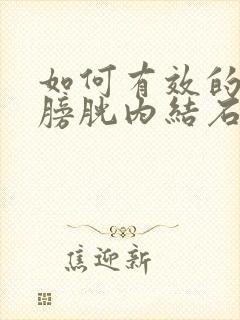 如何有效的
膀胱内結石
焦迎新